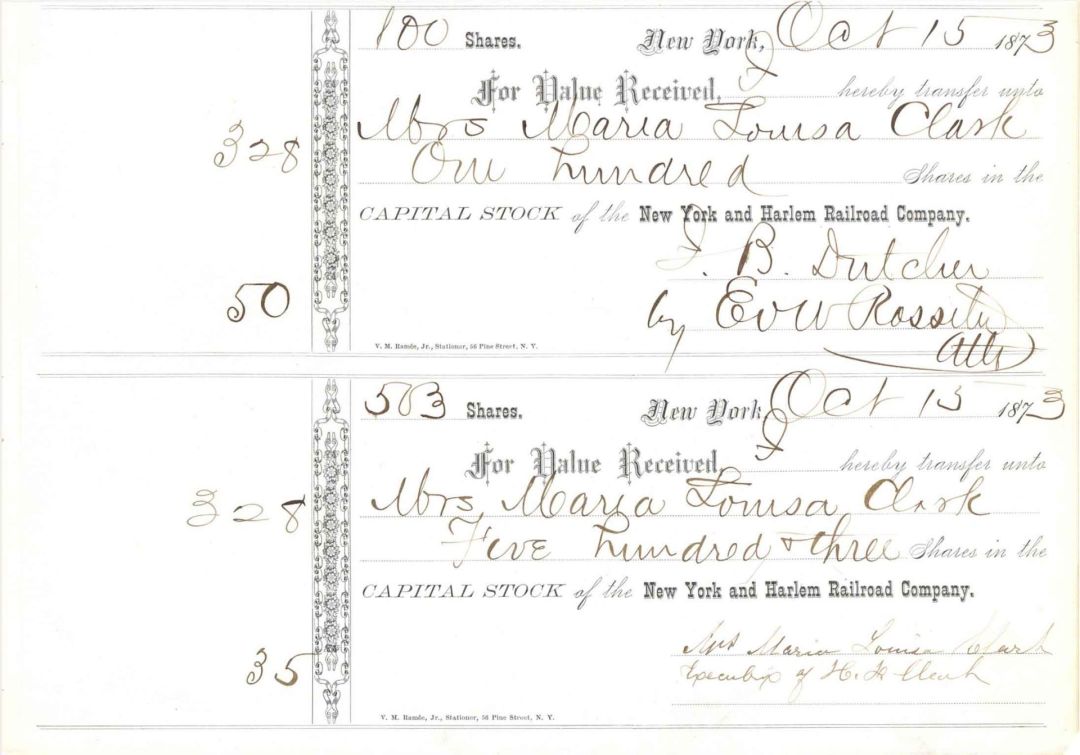 100 Shares. New York, Oct 15 1873
For Value Received, I hereby transfer unto
Mrs Maria Louisa Clark
328
One hundred Shares in the
CAPITAL STOCK of the New York and Harlem Railroad Company.
J. B. Dutcher
50
by E V W Rossiter
Atty
V. M. Ramée, Jr., Stationer, 56 Pine Street, N. Y.
503 Shares. New York, Oct 15 1873
For Value Received, I hereby transfer unto
Mrs, Maria Louisa Clark
328
Five hundred & three Shares in the
CAPITAL STOCK of the New York and Harlem Railroad Company.
Mrs Maria Louisa Clark
35
Executrix of H. Clark
V. M. Ramée, Jr., Stationer, 56 Pine Street, N. Y.